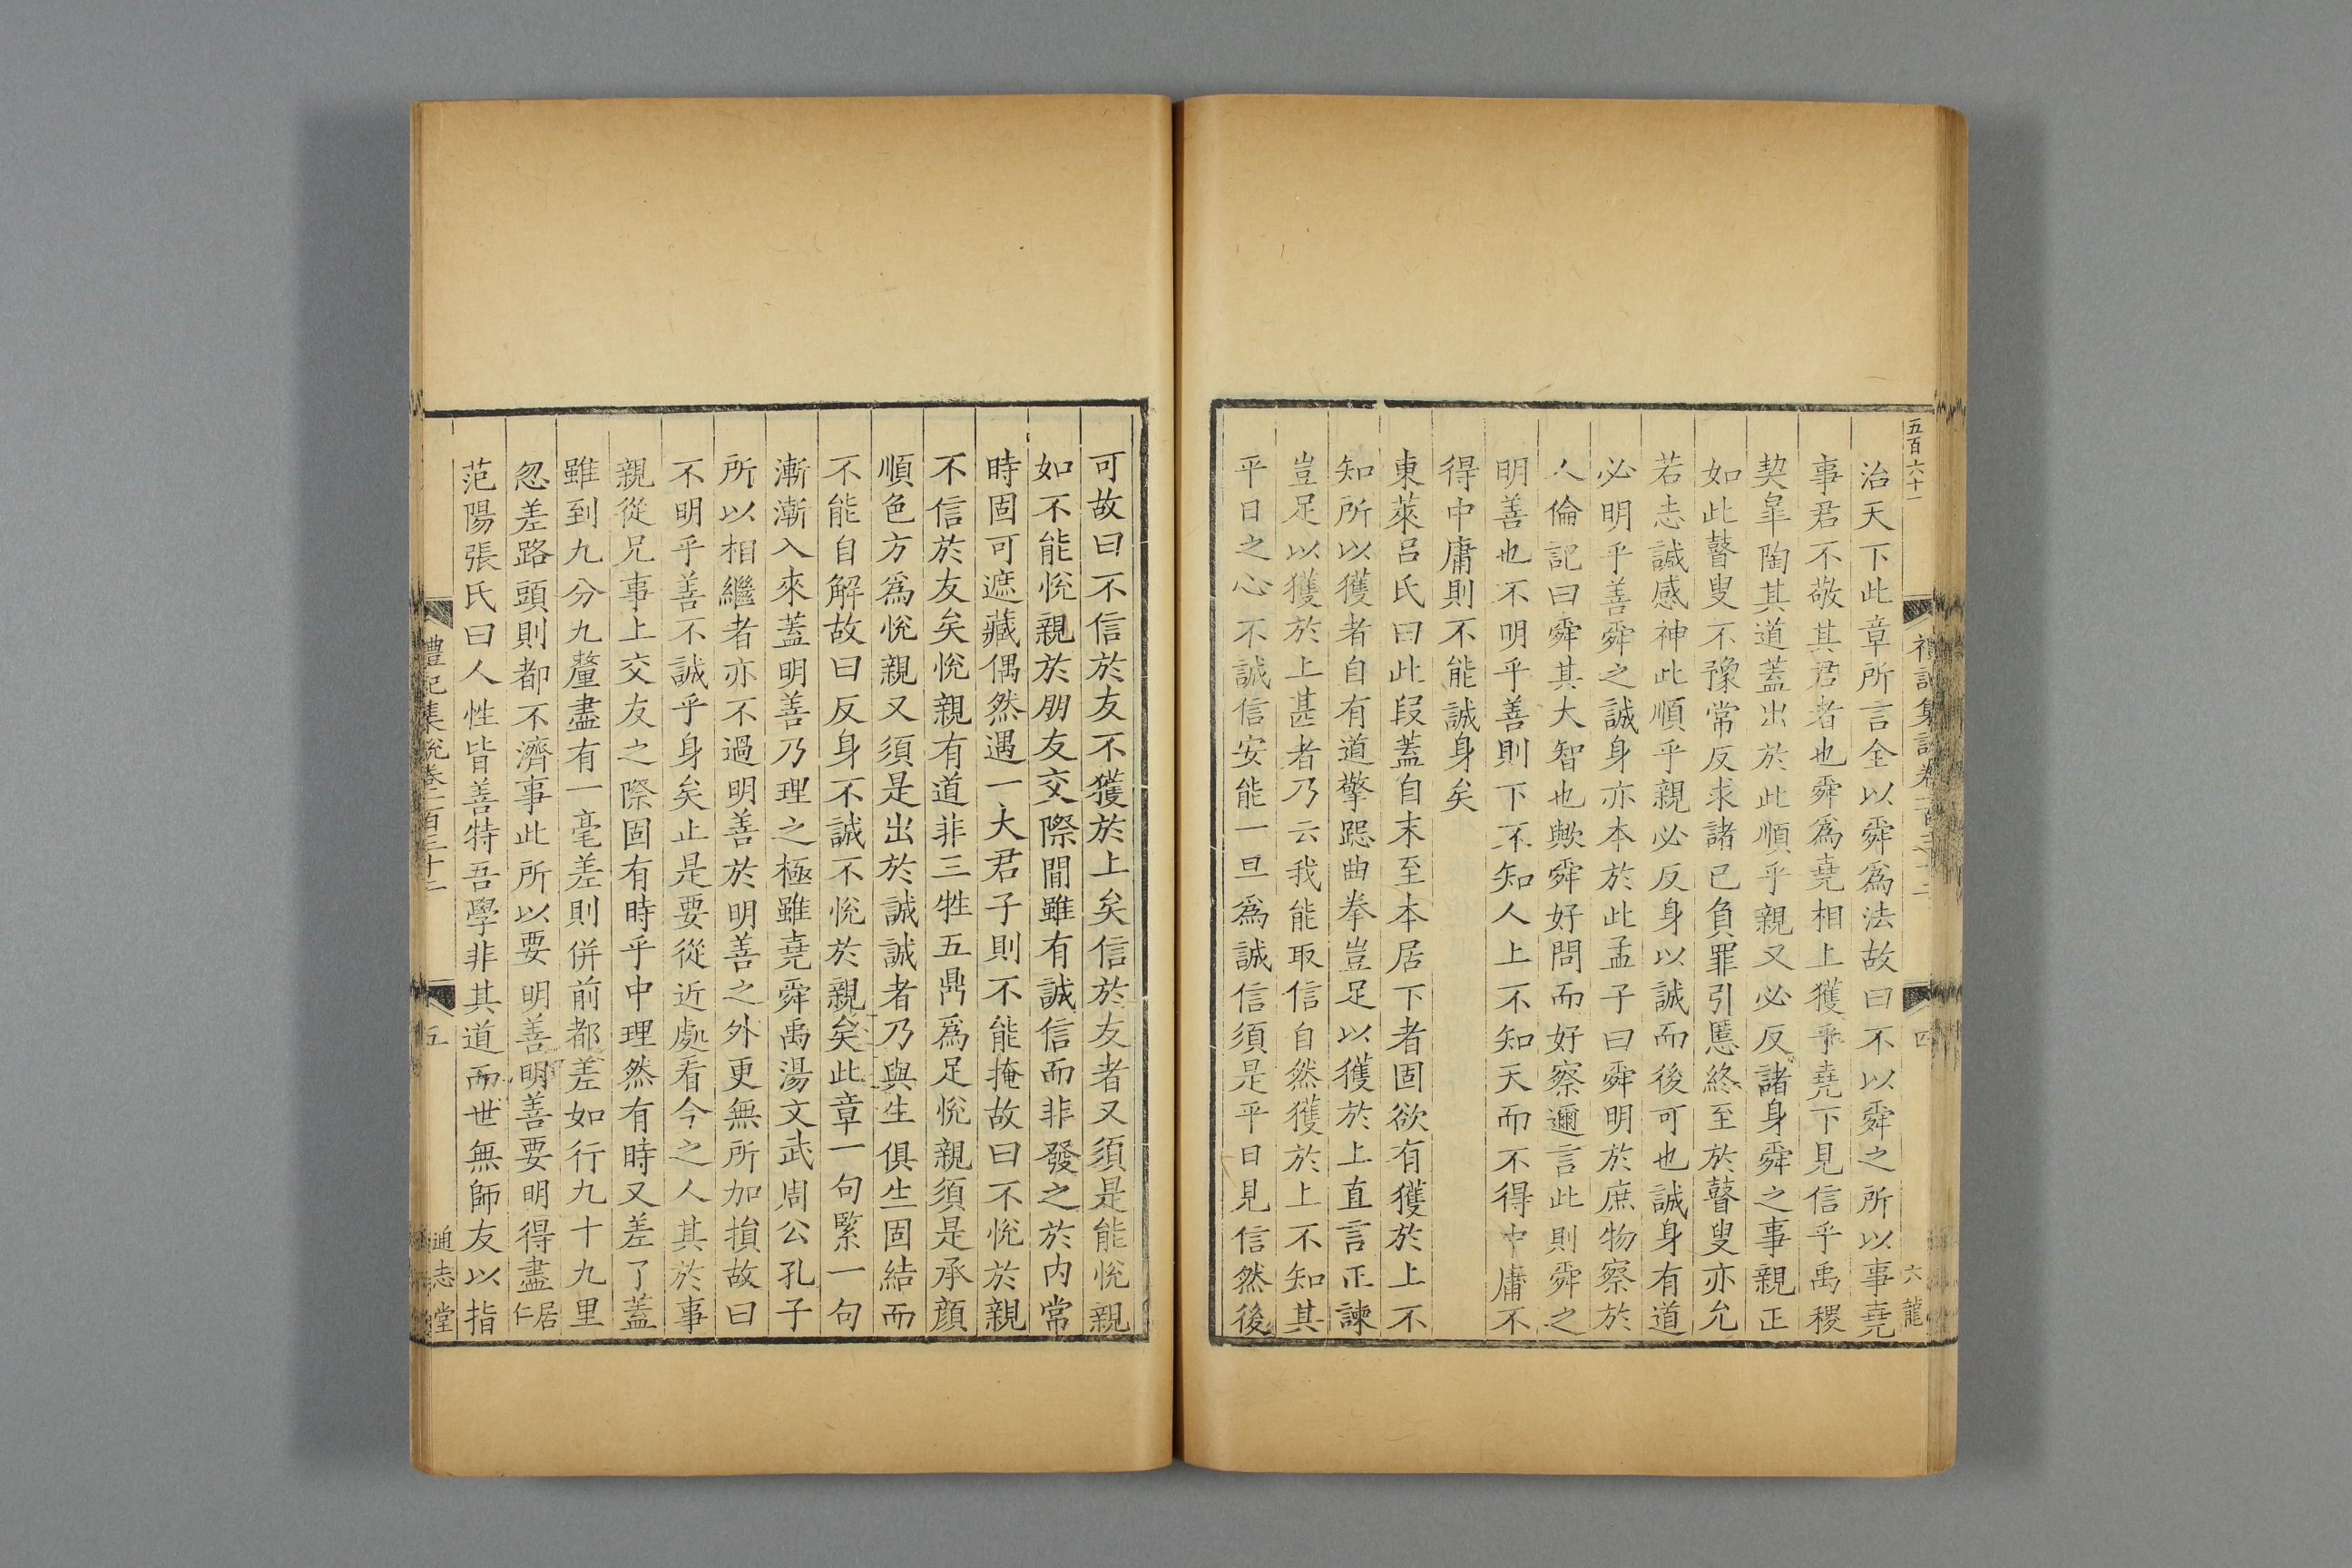 五百六十一
禮記集說卷一百三十二
四
六 龍
治天下此章所言全以舜爲法故曰不以舜之所以事堯
事君不敬其君者也舜爲堯相上獲乎堯下見信乎禹稷
契皐陶其道蓋出於此順乎親又必反諸身舜之事親正
如此瞽叟不豫常反求諸己負罪引慝終至於瞽叟亦允
若志誠感神此順乎親必反身以誠而後可也誠身有道
必明乎善舜之誠身亦本於此孟子曰舜明於庶物察於
人倫記曰舜其大智也歟舜好問而好察邇言此則舜之
明善也不明乎善則下不知人上不知天而不得中庸不
得中庸則不能誠身矣
東萊呂氏曰此段蓋自末至本居下者固欲有獲於上不
知所以獲者自有道擎跽曲拳豈足以獲於上直言正諫
豈足以獲於上甚者乃云我能取信自然獲於上不知其
平日之心不誠信安能一旦爲誠信須是平日見信然後
可故曰不信於友不獲於上矣信於友者又須是能悅親
如不能悅親於朋友交際間雖有誠信而非發之於内常
時固可遮藏偶然遇一大君子則不能掩故曰不悅於親
不信於友矣悅親有道非三牲五鼎爲足悅親須是承顔
順色方爲悅親又須是出於誠誠者乃與生俱生固結而
不能自解故曰反身不誠不悅於親矣此章一句緊一句
漸漸入來蓋明善乃理之極雖堯舜禹湯文武周公孔子
所以相繼者亦不過明善於明善之外更無所加損故曰
不明乎善不誠乎身矣止是要從近處看今之人其於事
親從兄事上交友之際固有時乎中理然有時又差了蓋
雖到九分九釐盡有一毫差則併前都差如行九十九里
忽差路頭則都不濟事此所以要明善明善要明得盡居仁
范陽張氏曰人性皆善特吾學非其道而世無師友以指
禮記集說卷一百三十二
五
通志堂